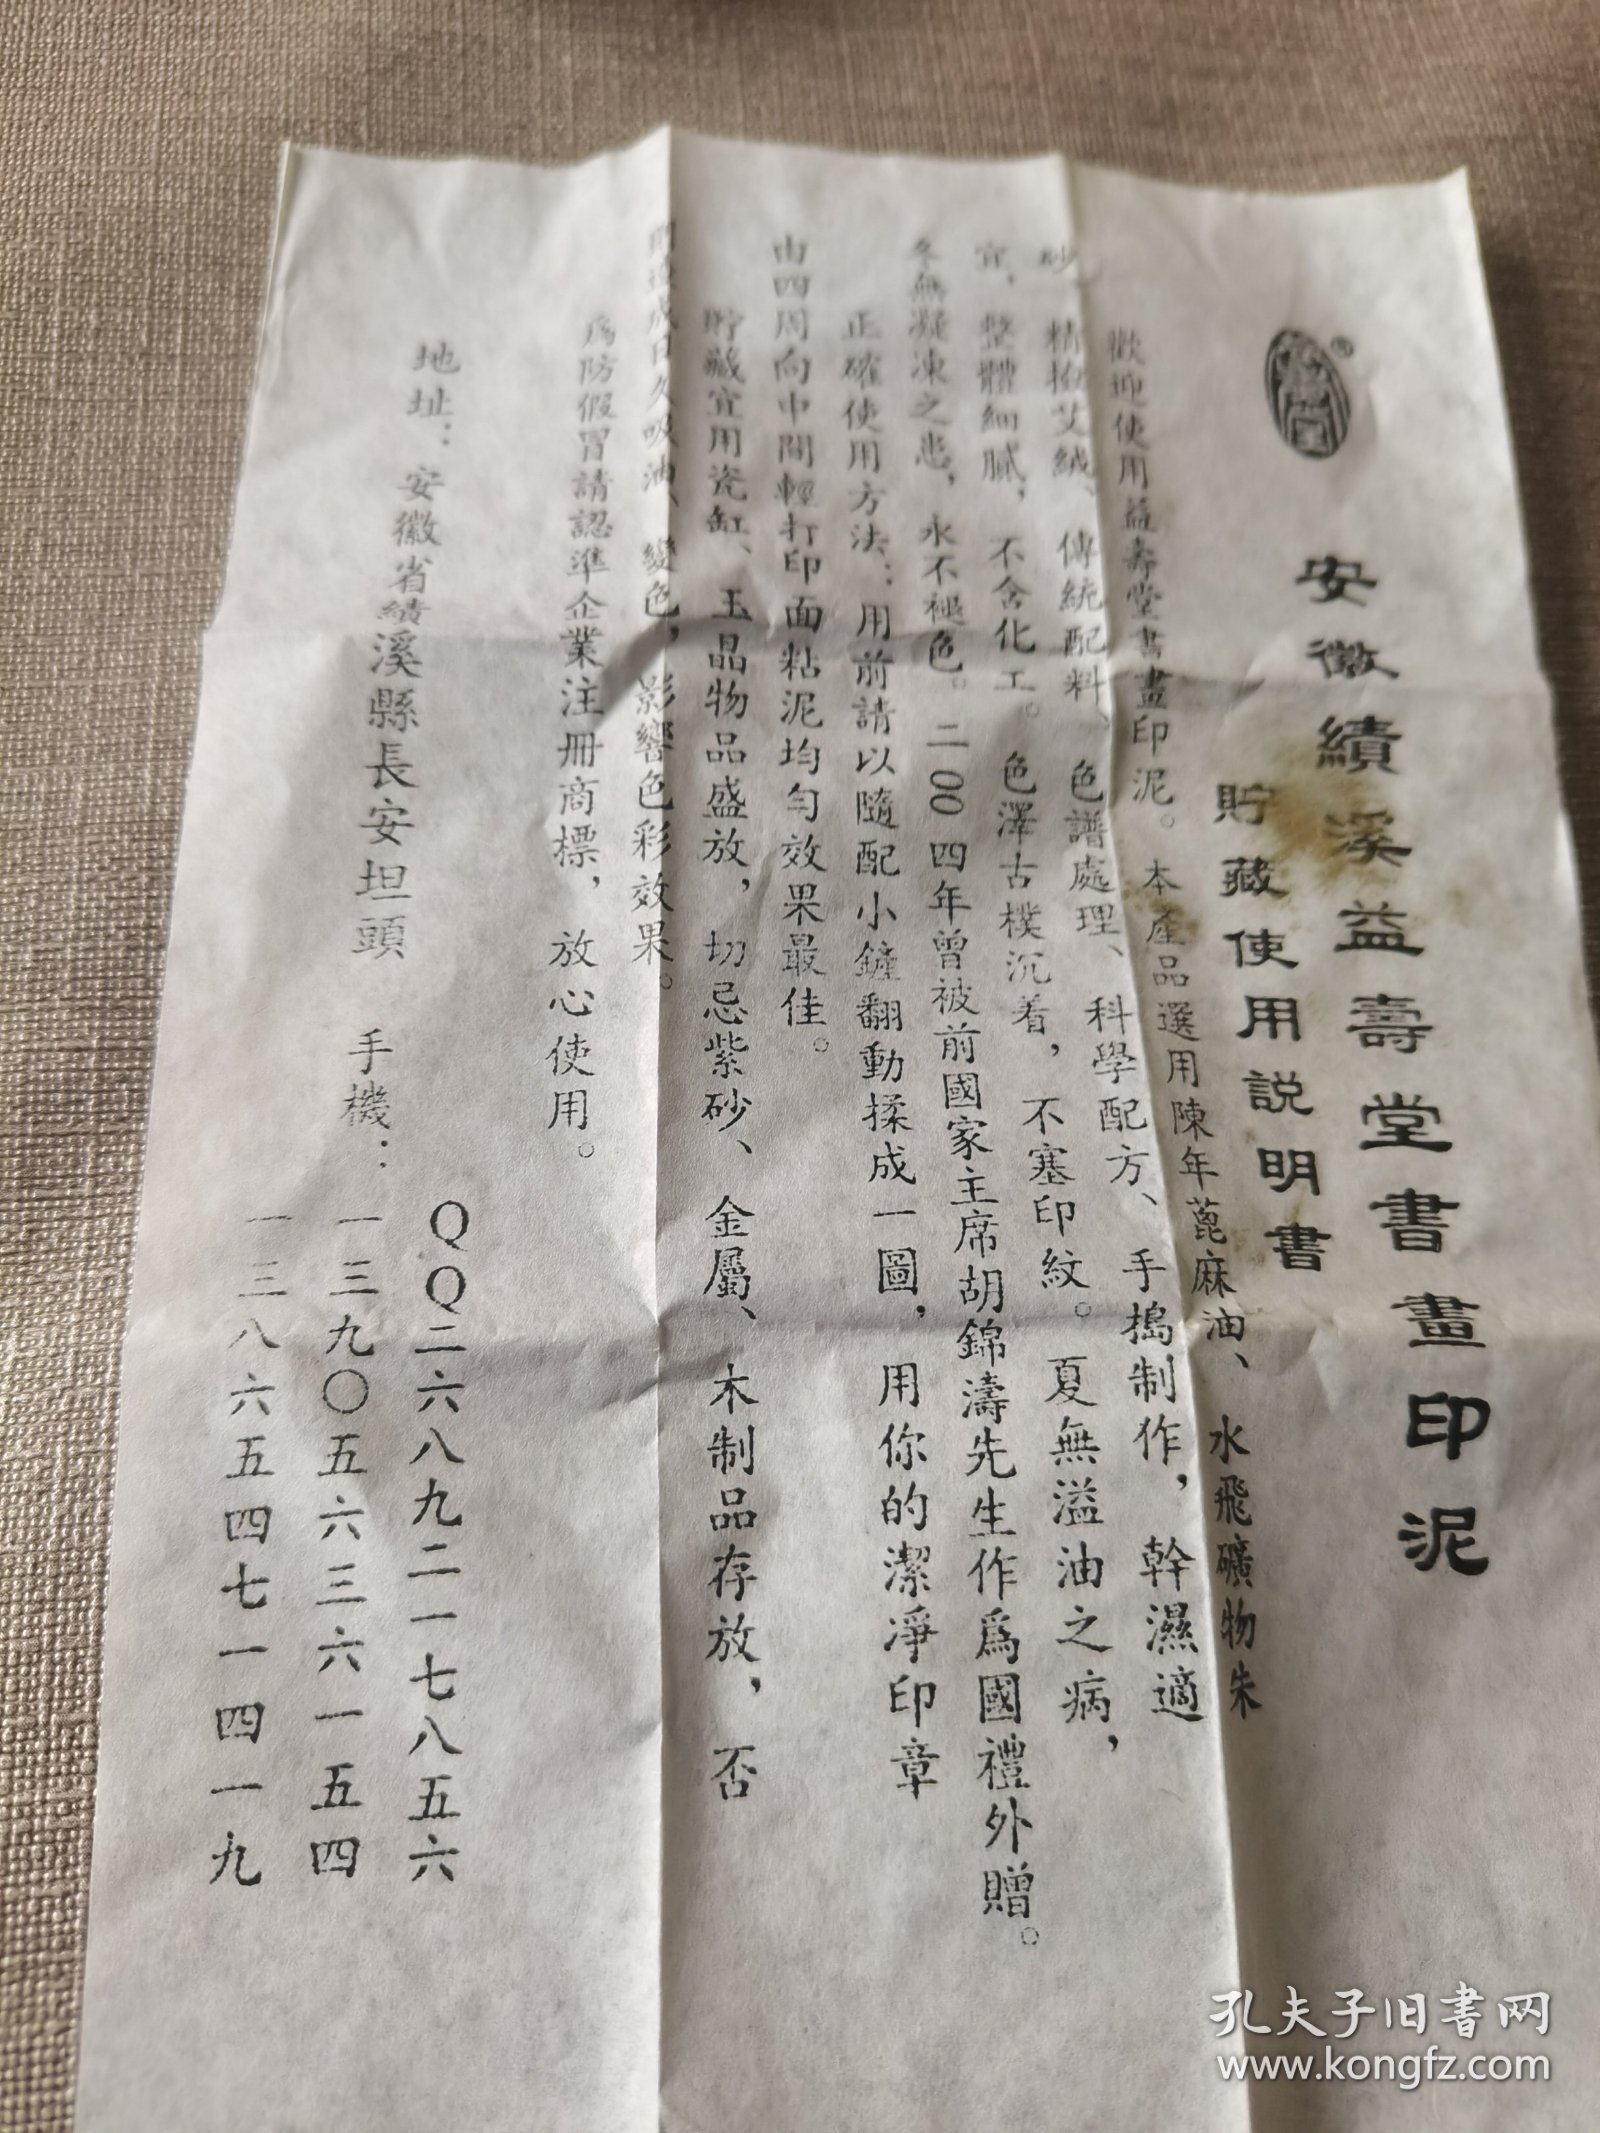 安徽績溪益壽堂書畫印泥
貯藏使用説明書
歡迎使用益壽堂書畫印泥。本產品選用陳年蓖麻油、水飛礦物朱
砂、精撿艾絨、傳統配料、色譜處理、科學配方、手搗制作，幹濕適
宜，整體細膩，不含化工。色澤古樸沉着，不塞印紋。夏無溢油之病，
冬無凝凍之患，永不褪色。二00四年曾被前國家主席胡錦濤先生作爲國禮外贈。
正確使用方法：用前請以隨配小鏟翻動揉成一圖，用你的潔凈印章
由四周向中間輕打印面粘泥均勻效果最佳。
貯藏宜用瓷缸、玉晶物品盛放，切忌紫砂、金屬、木制品存放，否
則造成日久吸油、變色，影響色彩效果。
爲防假冒請認準企業注冊商標，放心使用。
QQ二六八九二一七八五六
地址：安徽省績溪縣長安坦頭 手機：一三九〇五六三六一五四
一三八六五四七一四一九
孔夫子旧書网
www.kongfz.com